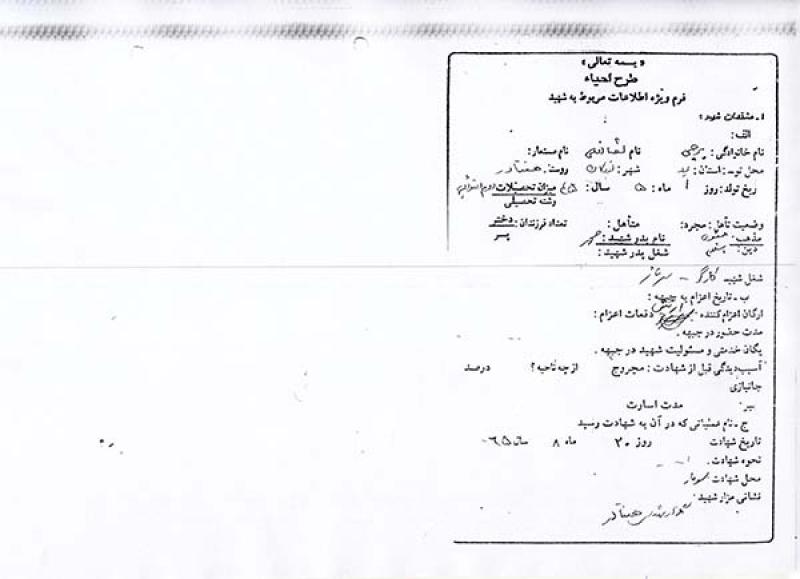 « بسمه تعالی »
طرح احیاء
فرم ویژه اطلاعات مربوط به شهید
۱ـ مشخصات شهید :
الف :
نام خانوادگی : نام نام مستعار :
محل تولد : استان : یزد شهر : اردکان روستا : هفتادر
ریخ تولد : روز ۱ ماه : ۵ سال : ۴۵ میزان تحصیلات
رشته تحصیلی
وضعیت تأهل : مجرد : متأهل : تعداد فرزندان : دختر
پسر
مذهب : نام پدر شهید :
دین : شغل پدر شهید :
شغل شهید کارگر - سرباز
ب ـ تاریخ اعزام به جبهه :
ارگان اعزام کننده : ارتش دفعات اعزام :
مدت حضور در جبهه .
یگان خدمتی و مسئولیت شهید در جبهه .
آسیب دیدگی قبل از شهادت : مجروح از چه ناحیه ؟ درصد
جانبازی
مدت اسارت
ج ـ نام عملیاتی که در آن به شهادت رسید
تاریخ شهادت روز ۲۰ ماه ۸ سال ۶۵
نحوه شهادت .
محل شهادت سومار
نشانی مزار شهید
هفتادر